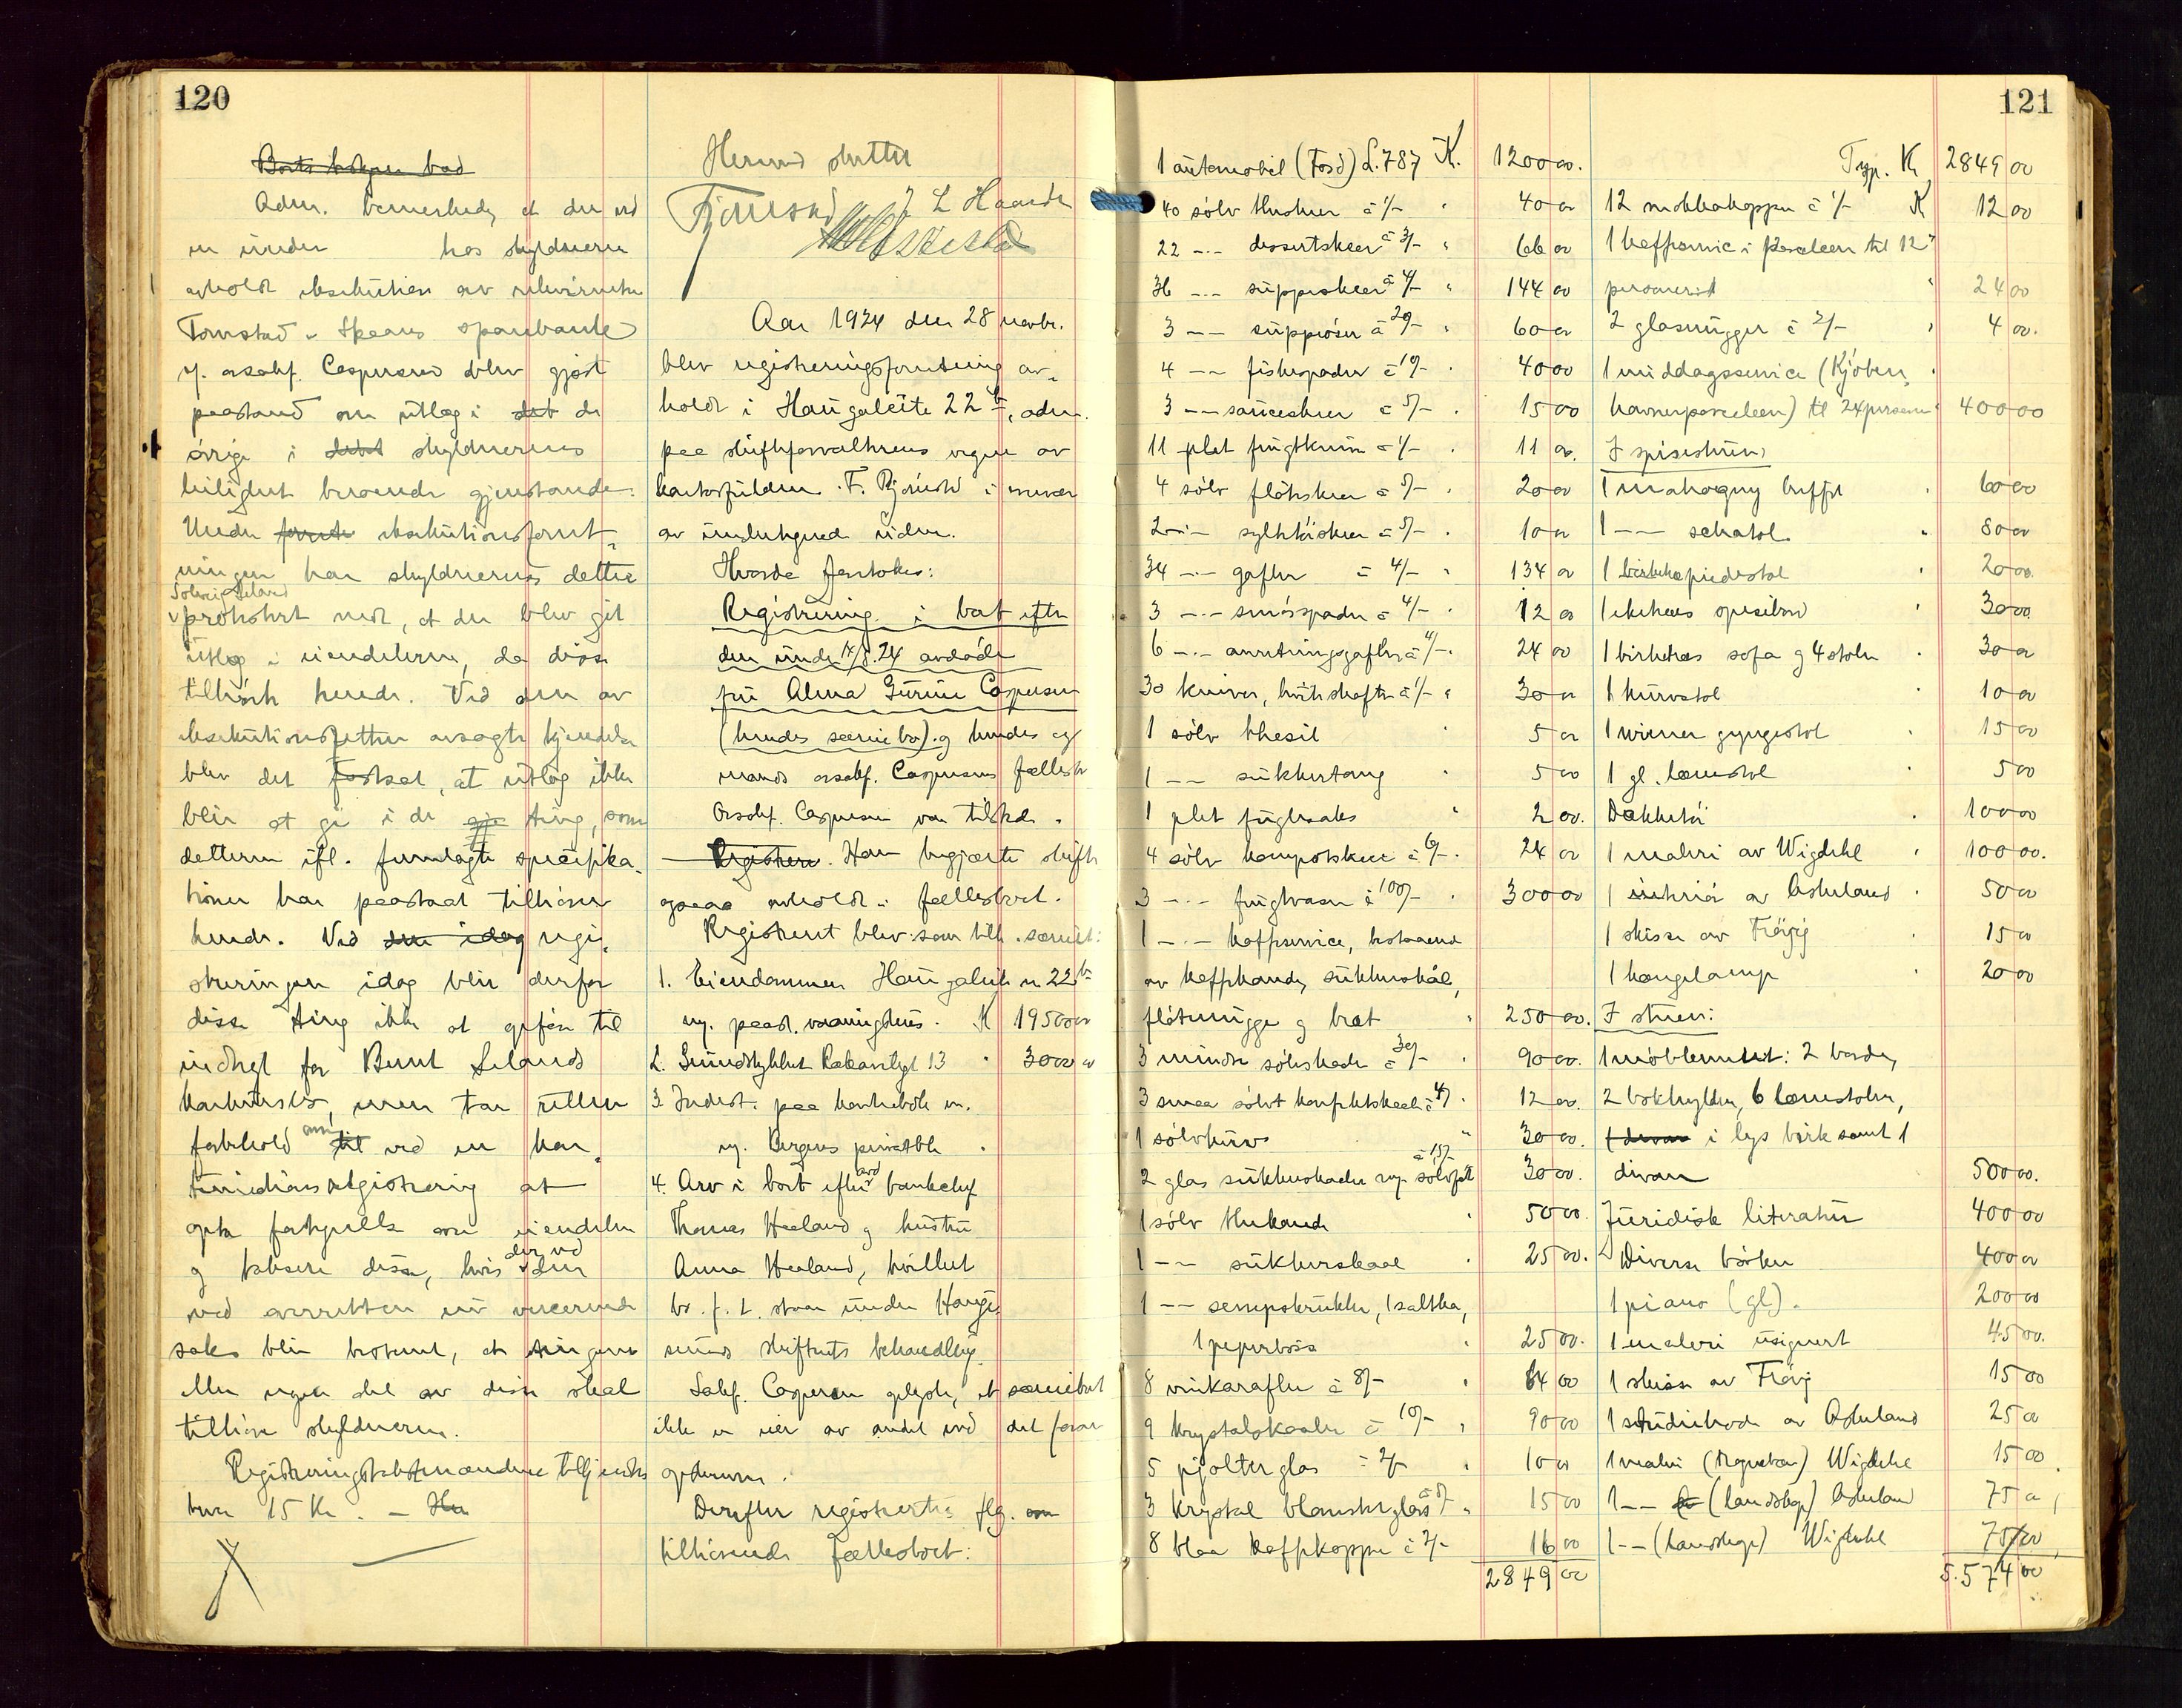 120
Adm. bemerkede, at der ved
en under hos skyldneren
avholdt eksekution av rekvirenten
Tomstad i Skeens sparebank
m. orsakf. Caspersen blev gjort
paastand om utlæg i de
øvrige i skyldnerens
leilighet beroende gjenstande.
Under eksekutionsforret-
ningen har skyldnerens datter
Solveig
protestert mot, at der blev git
utlæg i eiendelene, da disse
tilhørte hende. Ved den av
eksekutionsretten avsagte kjendelse
blev det fastsat, at utlæg ikke
blir at gi i de ting, som
datteren ifl. fremlagte specifika-
tioner har paastaat tilhører
hende. Ved regi-
streringen idag blir derfor
disse ting ikke at opføre til
indtægt for Bernt Selands
konkursbo, men tar retten
forbehold om ved en kon-
tinuationsregistrering at
opta fortegnelse over eiendelene
og taksere disse, hvis der ved
ved overretten nu verserende
sak blir bestemt, at tingene
eller nogen del av disse skal
tilhøre skyldneren.
Registreringstakstmændene tilkjendes
hver 15 Kr. –
Herved sluttet
J L Haarde
Aar 1924 den 28 novbr.
blev registreringsforretning av-
holdt i Haugaleite 22 b, adm.
paa skifteforvalterens vegne av
kontorfuldm. F. i nærvær
av undertegnede vidner.
Hvorda foretokes:
Registrering i boet efter
den under 14/8.24 avdøde
fru Alma Gurine Caspersen
(hendes særeiebo) og hendes og
mands orsakf. Caspersens fællesbo
Orsakf. Caspersen var tilstede.
Han begjærte skifte
ogsaa avholdt i fællesboet.
Registrert blev som tilh. særeiet:
1. Eiendommen Haugaleite n. 22 b
m. paast. vaaningshus. K 19500 00
2. Grundstykket 13 " 3000 00
3. Indest. paa bankbok in.
m. Bergens privatbk "
4. Arv i boet efter avd bankchef
Thomas Heeland og hustru
Anna Heeland, hvilket
bo f. t. staar under Hauge-
sunds skifterets behandling.
Sakf. Caspersen oplyste, at særeiboet
ikke er eier av andet end det foran
opførte.
Derefter registrertes flg.
tilhørende fællesboet:
121
1 automobil (Ford) L.787 K. 1200 00.
40 sølv theskeer à 1/- " 40 00
22 -·- dessertskeer à 3/- " 66 00
36 -·- suppeskeer à 4/- " 144 00
3 -- suppeøser à 20/- " 60 00
4 -- fiskespader à 10/- " 40 00
3 -- sauceskeer à 5/- " 15 00
11 plet frugtkniver à 1/- " 11 00.
4 sølv fløteskeer à 5/- " 20 00
2 -·- syltetøiskeer à 5/- " 10 00
34 -·- gafler à 4/- " 134 00
3 -·- smørspader à 4/- " 12 00
6 -·- anretningsgafler à 4/- " 24 00
30 kniver, hvite skafter à 1/- " 30 00
1 sølv thesil " 5 00
1 -- sukkertang " 5 00
1 plet fuglesaks " 2 00.
4 sølv kompotskeer à 6/- " 24 00
3 -·- frugtvaser à 100/- " 300 00
1 -·- kaffeservice, bestaaende
av kaffekande, sukkerskål,
fløtemugge og bret " 250 00.
3 mindre sølvskeder à 30/- " 90 00.
3 smaa sølvt konfektskaale à 4/- " 12 00.
1 sølvkurv " 30 00.
2 glas sukkerskaaler m. sølvfat à 15/- 30 00.
1 sølv thekande " 50 00.
1 -- sukkerskaal " 25 00.
1 -- senepskrukke, 1 saltkar,
1 peperbøsse " 25 00.
8 vinkarafler à 8/- " 64 00
9 krystalskaaler à 10/- " 90 00
5 pjolterglas à 2/- " 10 00
3 krystal blomsterglas à 5/- " 15 00
8 blaa kaffekopper à 2/- 16 00
2849 00
Trsp. K 2849 00
12 mokkakopper à 1/- K 12 00
1 kaffeservice i porcelæn til 12
personer " 24 00
2 glasmugger à 2/- " 4 00.
1 middagsservice (Kjøben-
havnerporcelæn) til 24 personer " 400 00
I spisestuen:
1 mahogny buffet " 60 00
1 -- sekretol " 80 00
1 birkeke piedestal " 20 00
1 ekekes spisebord " 30 00
1 birkekes sofa og 4 stoler " 30 00
1 kurvstol " 10 00
1 wiener gyngestol " 15 00
1 gl. lænestol " 5 00
Dækketøi " 100 00
1 maleri av Wigdehl " 100 00.
1 interiør av Askeland " 50 00
1 skisse av " 15 00
1 hængelampe " 20 00
I stuen:
1 møblement: 2 borde,
2 bokhylder, 6 lænestoler,
i lys birk samt 1
divan 500 00.
Juridisk literatur 400 00
Diverse bøker 400 00
1 piano (gl). 200 00
1 maleri usignert 45 00.
1 skisse av 15 00
1 studiehode av Askeland 25 00
1 maleri Wigdehl 15 00
1 -- (landskap) Askeland 75 00
1 -- (landskap) Wigdehl 75 00
5.574 00